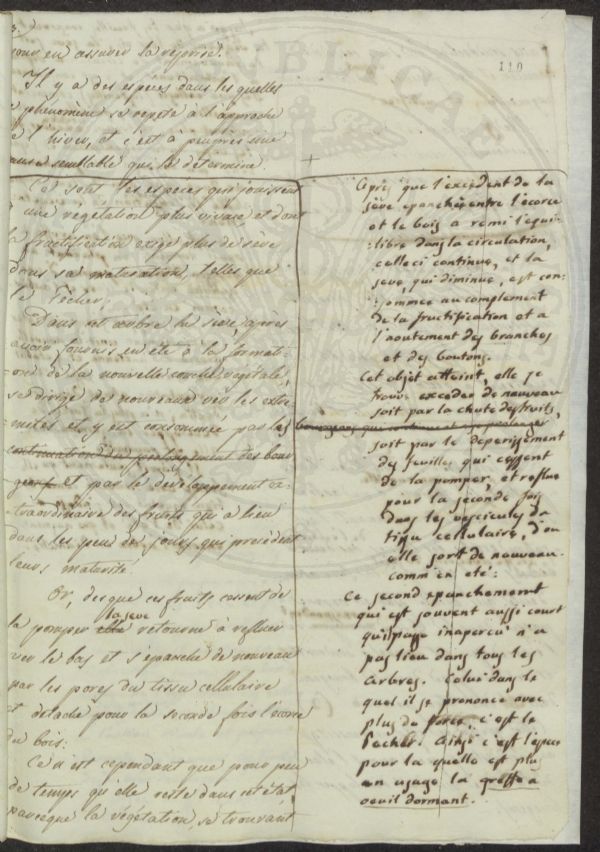 3.
110
pour en assurer la reprise.
Il y a des especes dans les quelles
phenomène se repete à l'approche
l'hiver, et c'est à peuprès une
cause semblable qui le determine.
Ce sont les especes qui jouissent
d'une végétation plus vivace et dont
la fructification exige plus de sève
dans sa maturation, telles que
le Pêcher.
Dans cet arbre la sève, après
avoir fourni en été à la formati-
on de la nouvelle couche végétale,
se dirige de nouveau vers les extre
mités et y est consommée par les bourgeons qui continuent a se prolonger
continuation du prolongement des bour
geons et par le développement ex-
traordinaire des fruits qui a lieu
dans les peu de jours qui précèdent
leurs maturité.
Or, des que ces fruits cessent de
la seve
la pomper elle retourne à refluer
ver le bas et s'épanche de nouveau
par les pores du tissu cellulaire
et détache pour la seconde fois l'écorce
du bois:
Ce n'est cependant que pour peu
de temps qu'elle reste dans cet état,
parceque la végétation, se trouvant
+
Après que l'excédent de la
sève épanchée entre l'écorce
et le bois a remi l'equi-
:libre dans la circulation,
celleci continue, et la
seve, qui diminue, est con:
:sommée au complement
de la fructification et a
l'aoutement des branches
et des boutons.
Cet objet atteint, elle se
trouve exceder de nouveau
soit par la chute des fruits,
soit par le deperissement
des feuilles qui cessent
de la pomper, et reflue
pour la seconde fois
dans les vesicules du
tissu cellulaire, d'ou
elle sort de nouveau
comm'en eté:
Ce second epanchement
qui est souvent aussi court
qu'il passe inaperçu n'a
pas lieu dans tous les
arbres. Celui dans le
quel il se prononce avec
plus de force, c'est le
Pecher. Ainsi c'est l'espece
pour la quelle est plu
en usage la greffe a
oeuil dormant.